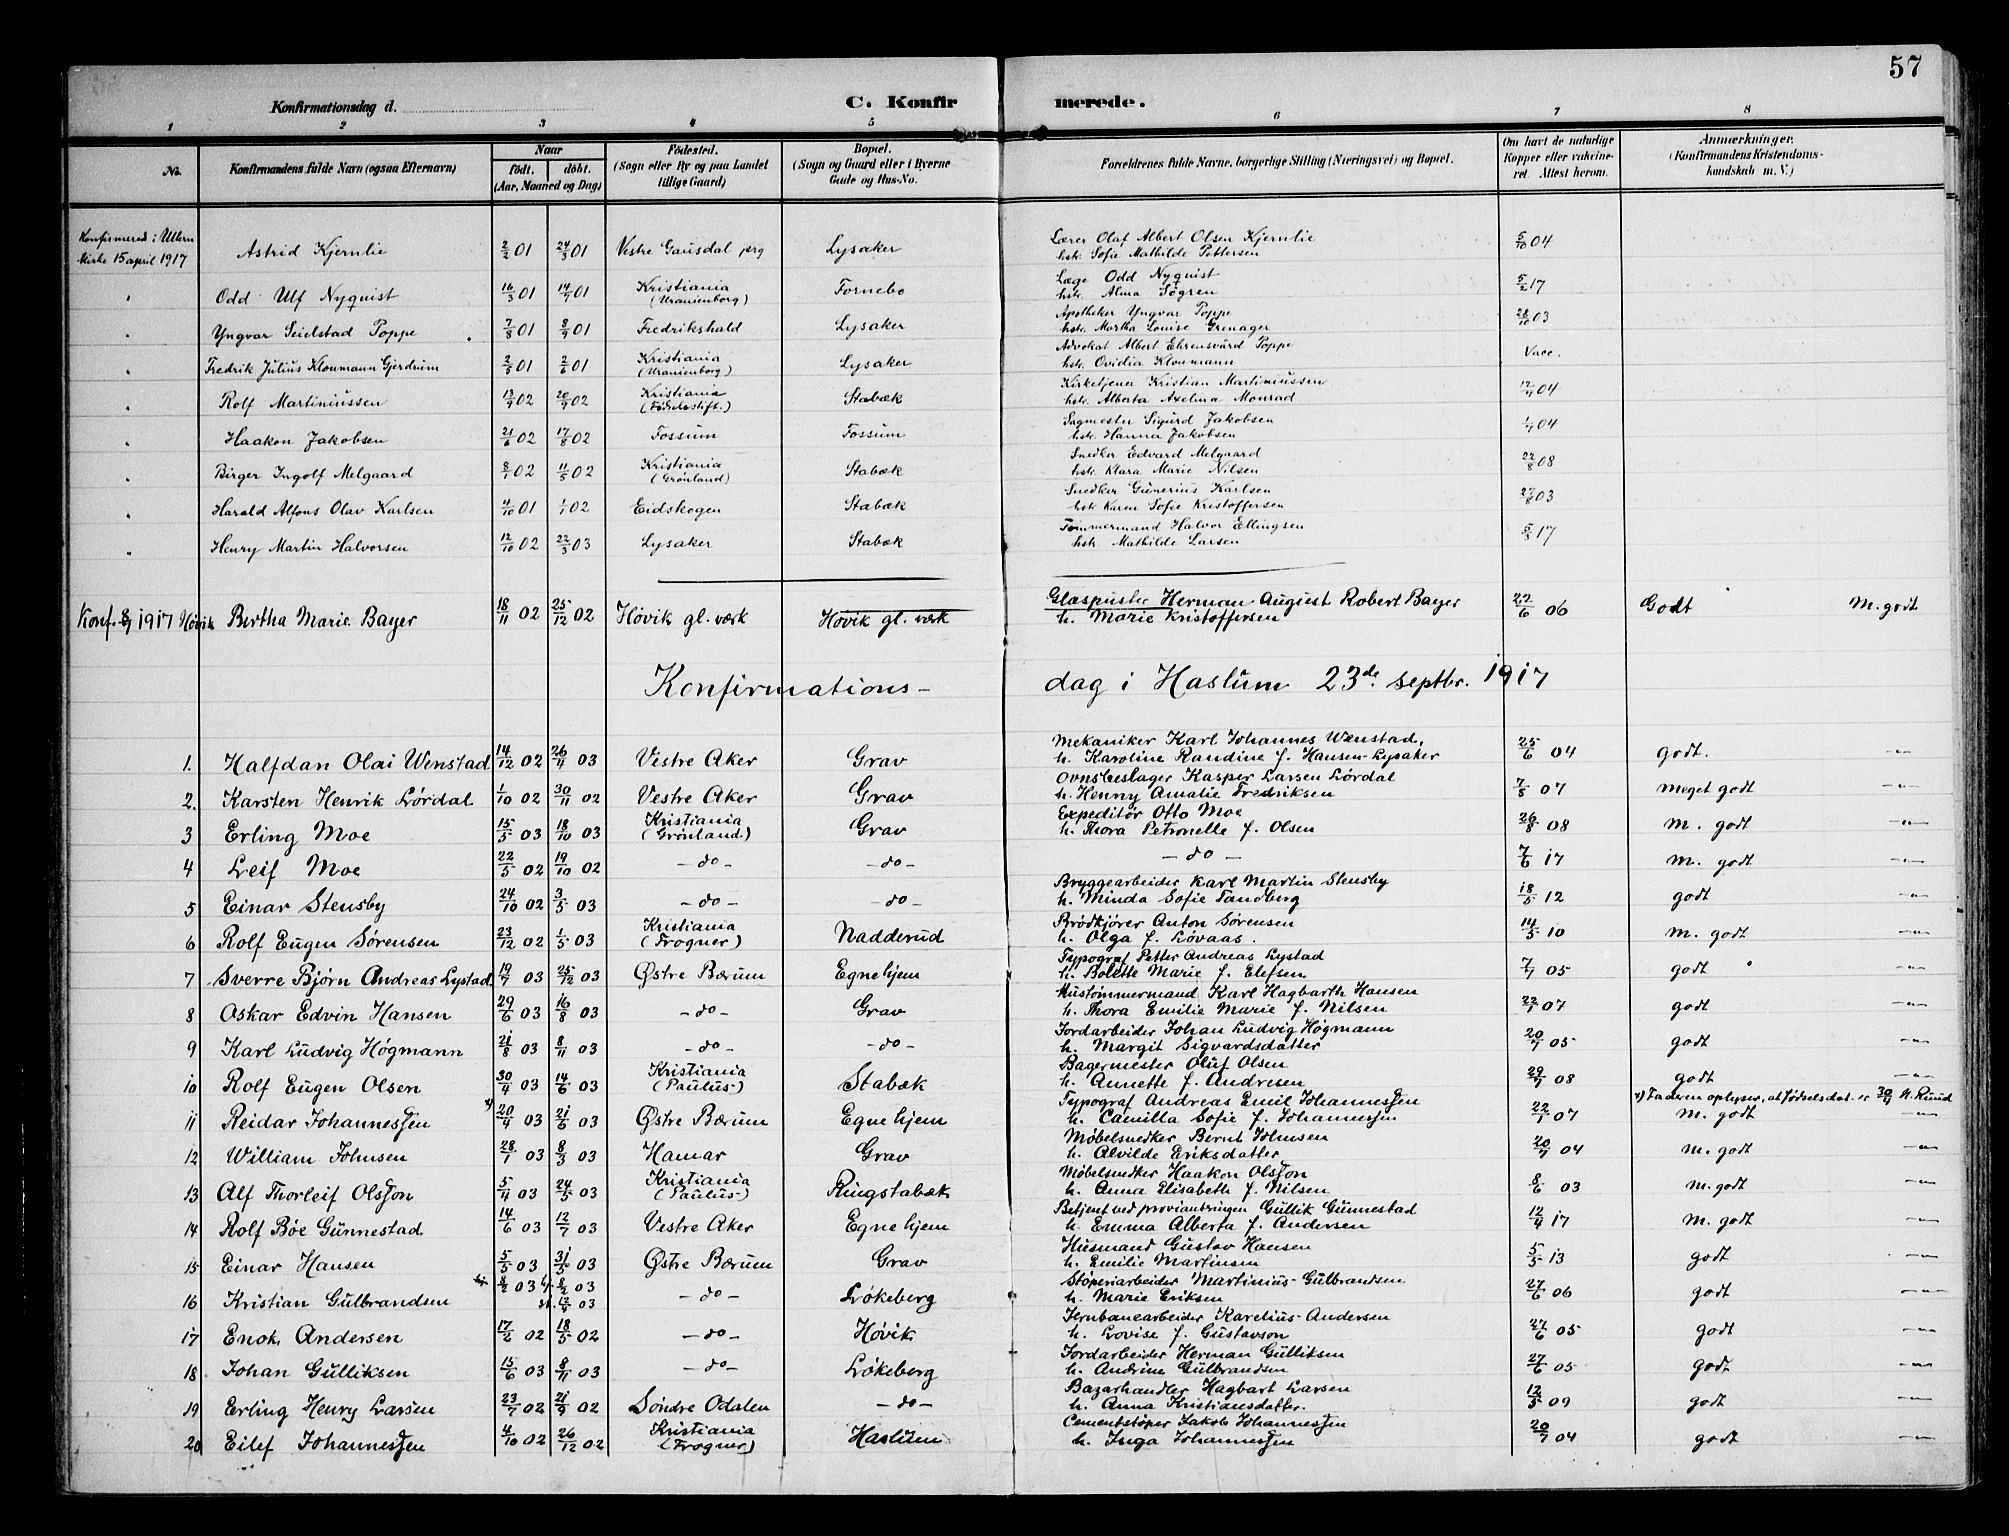 57
Konfirmationsdag d.
C. Konfirmerede.
1 2 3 4 5 6 7 8
No. Konfirmandens fulde Navn (ogsaa Efternavn) Naar født, døbt. (Aar, Maaned og Dag) Fødested. (Sogn eller By og paa Landet tillige Gaard) Bopæl. (Sogn og Gaard eller i Byerne Gade og Hus-No. Forældrenes fulde Navne, borgerlige Stilling (Næringsvei) og Bopæl. Om havt de naturlige Kopper eller vakcineret. Attest herom. Anmærkninger. (Konfirmandens Kristendomskundskab m. V.)
Konfirmered i Ullern kirke 15 april 1917 Astrid Kjernlie 2/2 01 24/3 01 Vestre Gausdal prg Lysaker Lærer Olaf Albert Olsen Kjernlie hstr. Sofie Mathilde Pettersen 5/10 04
" Odd Ulf Nyquist 16/3 01 14/7 01 Kristiania (Uranienborg) Fornebo Læge Odd Nyquist hstr. Alma Sögren 5/2 17
" Yngvar Seielstad Poppe 7/8 01 8/9 01 Fredrikshald Lysaker Apotheker Yngvar Poppe hstr. Martha Louise Grenager 28/10 03
" Fredrik Julius Kloumann Gjerdrum 2/5 01 2/6 01 Kristiania (Uranienborg) Lysaker Advokat Albert Ehrensvärd Poppe hstr. Ovidia Kloumann Vacc.
" Rolf Martiniussen 13/9 02 20/9 02 Kristiania (Fødselsstift.) Stabæk Kirketjener Kristian Martiniussen hstr. Alberta Axelina Monrad 12/9 04
" Haakon Jakobsen 21/6 02 17/8 02 Fossum Fossum Sagmester Sigurd Jakobsen hstr. Hanna Jakobsen 1/7 04
" Birger Ingolf Melgaard 8/1 02 11/5 02 Kristiania (Grønland) Stabæk Snedker Edvard Melgaard hstr. Klara Marie Nilsen 22/8 08
" Harald Alfons Olav Karlsen 4/10 01 1/1 02 Eidskogen Stabæk Snedker Gunerius Karlsen hstr. Karen Sofie Kristoffersen 27/8 03
" Henry Martin Halvorsen 12/10 02 22/3 03 Lysaker Stabæk Tømmermand Halvor Ellingsen hstr. Mathilde Larsen 5/3 17
Konf. 8/7 1917 Høvik Bertha Marie Bayer 18/11 02 25/12 02 Høvik gl. værk Høvik gl. værk Glaspuster Herman August Robert Bayer h. Marie Kristoffersen 22/6 06 Godt M. godt
Konfirmationsdag i Haslum 23de septbr. 1917
1. Halfdan Olai Wenstad 14/12 02 26/11 03 Vestre Aker Grav Mekaniker Karl Johannes Wenstad, h. Karoline Randine f. Hansen-Lysaker 25/6 04 godt. -"-
2. Karsten Henrik Lørdal 1/10 02 30/11 02 Vestre Aker Grav Ovnsbeslager Kasper Larsen Lørdal h. Henny Amalie Fredriksen 7/8 07 meget godt -"-
3 Erling Moe 15/5 03 18/10 03 Kristiania (Grønland) Grav Expeditör Otto Moe h. Thora Petronelle f. Olsen 26/8 08 m. godt -"-
4 Leif Moe 22/5 02 19/10 02 - do - - do - - do - 7/6 17 m. godt -"-
5 Einar Stensby 24/10 02 3/5 03 - do - - do - Bryggearbeider Karl Martin Stensby h. Minda Sofie Tandberg 18/5 12 godt -"-
6 Rolf Eugen Sørensen 23/12 02 1/5 03 Kristiania (Frogner) Nadderud Brødkjører Anton Sørensen h. Olga f. Løvaas. 14/5 10 m. godt -"-
7 Sverre Bjørn Andreas Lystad. 19/7 03 25/12 03 Østre Bærum Egne hjem Typograf Petter Andreas Lystad h. Bolette Marie f. Elefsen 7/7 05 godt -"-
8 Oskar Edvin Hansen 29/6 03 16/8 03 - do - Grav Hustømmermand Karl Hagbarth Hansen h. Thora Emilie Marie f. Nilsen 22/7 07 godt -"-
9 Karl Ludvig Högmann 21/8 03 8/11 03 - do - - do - Jordarbeider Johan Ludvig Högmann h. Margit Sigvardsdatter 20/7 05 godt -"-
10 Rolf Eugen Olsen 30/4 03 14/6 03 Kristiania (Paulus-) Stabæk Bagermester Oluf Olsen h. Annette f. Andresen 29/9 08 godt -"-
11 Reidar Johannessen x) 20/4 03 21/6 03 Østre Bærum Egne hjem Typograf Andreas Emil Johannessen h. Camilla Sofie f. Johannessen 22/1 07 x) Faderen oplyser, at fødselsdat. er 30/4 N. Ruud m. godt -"-
12 William Johnsen 28/1 03 8/3 03 Hamar Grav Møbelsnedker Bernt Johnsen h. Alvilde Eriksdatter 20/9 04 m. godt -"-
13 Alf Thorleif Olsson 5/4 03 24/5 03 Kristiania (Paulus-) Ringstabæk Møbelsnedker Haakon Olsson h. Anna Elisabeth f. Nilsen 8/6 03 m. godt -"-
14 Rolf Bøe Gunnestad 14/6 03 12/7 03 Vestre Aker Egne hjem Betjent ved proviantringen Gullik Gunnestad h. Emma Alberta f. Andersen 12/9 17 m. godt -"-
15 Einar Hansen 5/5 03 31/5 03 Østre Bærum Grav Husmand Gustav Hansen h. Emilie Martinsen 5/5 13 godt -"-
16 Kristian Gulbrandsen 8/2 03 hj. 8/2 03 st. 12/4 03 - do - Løkeberg Støperiarbeider Martinius Gulbrandsen h. Marie Eriksen 27/6 06 godt -"-
17 Enok Andersen 17/2 02 18/5 02 - do - Høvik Jernbanearbeider Karelius Andersen h. Lovise f. Gustavson 27/6 05 godt -"-
18 Johan Gulliksen 15/6 03 8/11 03 - do - Løkeberg Jordarbeider Herman Gulliksen h. Andrine Gulbrandsen 27/6 05 godt -"-
19 Erling Henry Larsen 23/7 02 21/9 02 Søndre Odalen - do - Bazarhandler Hagbart Larsen h. Anna Kristiansdatter. 12/5 09 godt -"-
20 Eilef Johannessen 4/10 02 26/12 02 Kristiania (Frogner) Haslum Cementstøper Jakob Johannessen h. Inga Johannessen 20/7 04 godt -"-